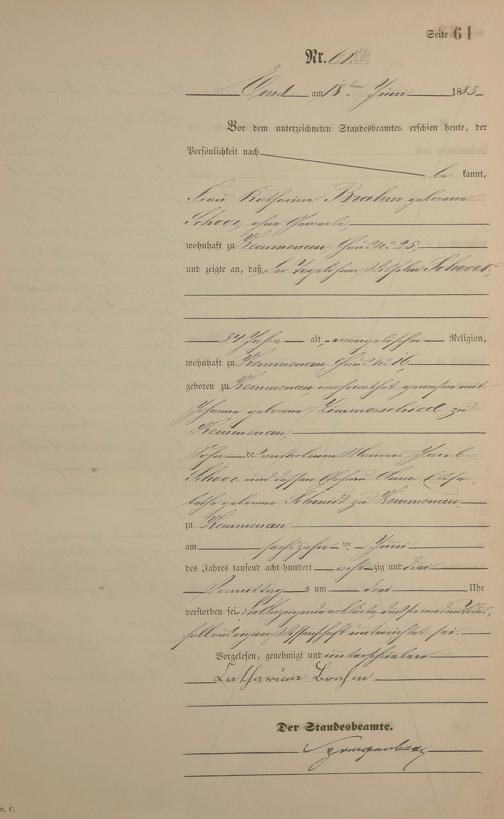 Seite 61
Nr. 61
Ems am 18ten Juni 1883.
Vor dem unterzeichneten Standesbeamten erschien heute, der
Persönlichkeit nach
be kannt,
Frau Katharine Brahm geborene
Schoor, ohne Gewerbe,
wohnhaft zu Kemmenau Haus No 25,
und zeigte an, daß der Tagelöhner Wilhelm Schoor,
34 Jahre alt, evangelischer Religion,
wohnhaft zu Kemmenau Haus No 16,
geboren zu Kemmenau, verheirathet gewesen mit
Johanna geborene Zimmerschied zu
Kemmenau,
Sohn des verstorbenen Jacob
Schoor und dessen Ehefrau Anna Elisa-
beth geborene Schmidt zu Kemmenau,
zu Kemmenau
am sechszehnten Juni
des Jahres tausend acht hundert achtzig und drei
Vormittags um drei Uhr
verstorben sei. Die Anzeigende erklärte, daß sie von dem Sterbe-
fall aus eigener Wissenschaft unterrichtet sei.
Vorgelesen, genehmigt und unterschrieben
Catharine Brahm
Der Standesbeamte.
Spangenberg